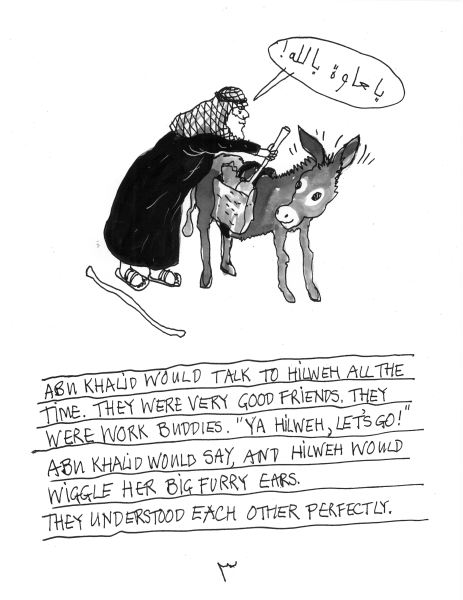 يا حلوة يالله!
ABU KHALID WOULD TALK TO HILWEH ALL THE
TIME. THEY WERE VERY GOOD FRIENDS. THEY
WERE WORK BUDDIES. "YA HILWEH, LET'S GO!"
ABU KHALID WOULD SAY, AND HILWEH WOULD
WIGGLE HER BIG FURRY EARS.
THEY UNDERSTOOD EACH OTHER PERFECTLY.
٣